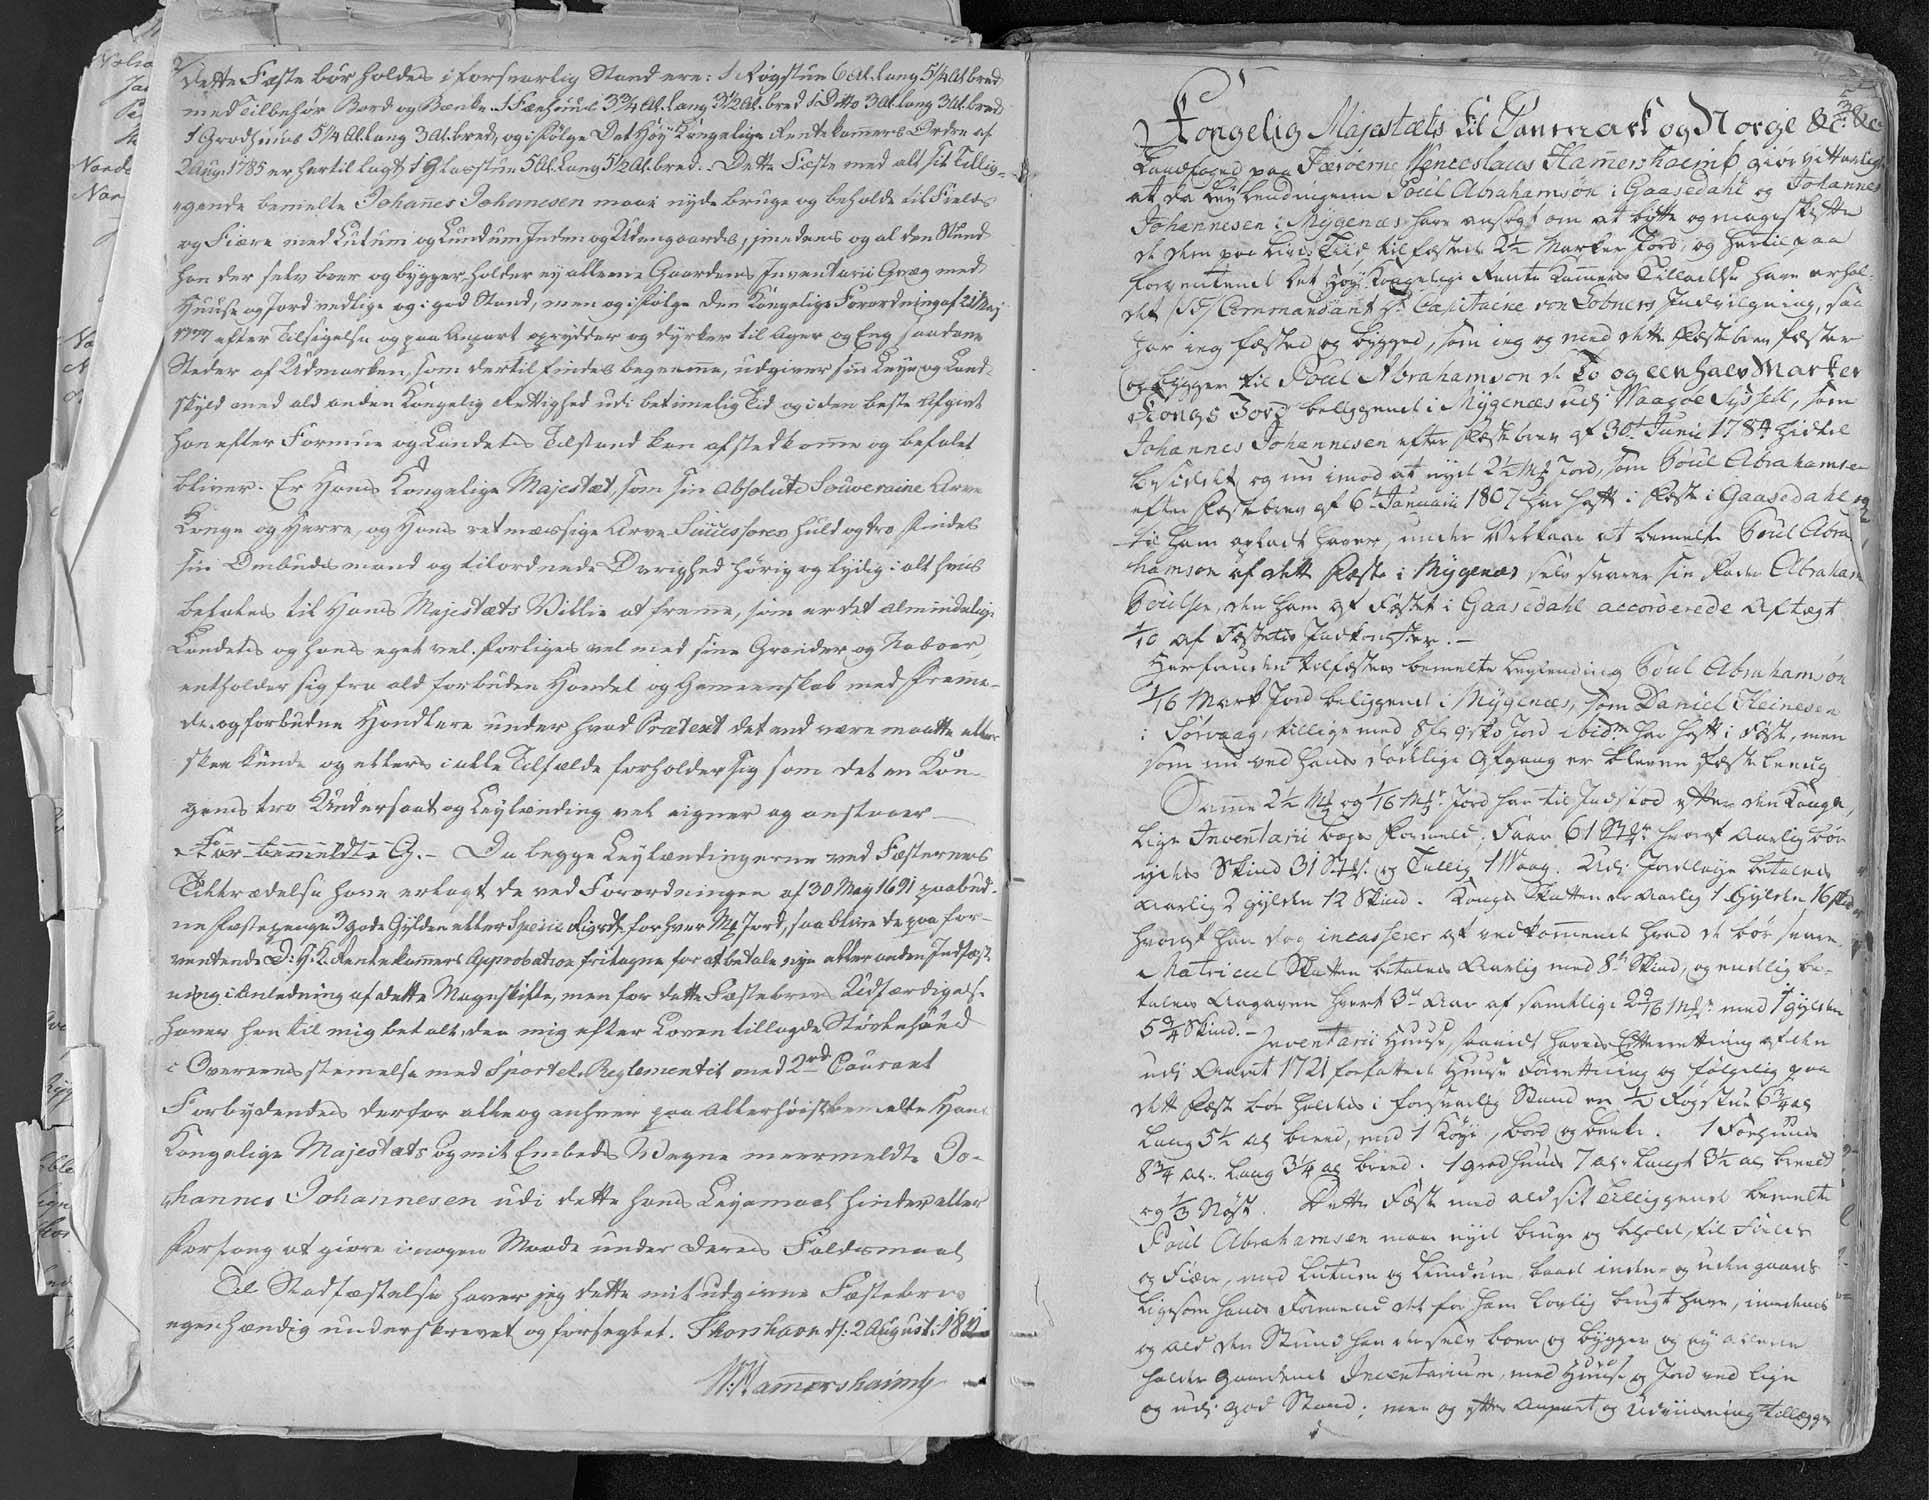 dette Fæste bør holdes i forsvarlig Stand ere: 1 Røgstue 6 Al. lang 5 1/4 Al. bred
med Tilbehør Bord og Bænke. 1 Fæehuus 3 3/4 Al. lang 3 1/2 Al. bred 1 Ditto 3 Al. lang 3 Al. bred
1 Grodhuus 5 1/4 Al. lang 3 Al. bred, og ifølge Det Høy Kongelige Rentekammers Ordre af
2 Aug. 1785 er hertil lagt 1 Glasstue 5 Al. lang 5 1/2 Al. bred. Dette Fæste med alt sit Tillig-
gende bemelte Johannes Johannesen maae nyde bruge og beholde til Fields
og Fiære med Lutum og Lundum Inden og Udengaards, imedens og al den Stund
han der selv boer og bygger, holder ey alleene Gaardens Inventarii Qvæg med
Huuse og Jord vedlige og i god Stand, men og ifølge den Kongelige Forordning af 21 Maj
1777 efter Tilsigelse og paa Anpart oprydder og dyrker til Ager og Eng saadane
Steder af Udmarken, som dertil findes beqvemme, udgiver sin Leye og Land-
skyld med ald anden Kongelig Rettighed udi betimelig Tid og i den beste Afgivt
han efter Formue og Landets Tilstand kan afstedkomme og befalet
bliver. Er Hans Kongelige Majestæt, som sin Absolute Souveraine Arve
Konge og Herre, og Hans retmæssige Arve Successores huld og tro findes
sin Ombudsmand og tilordnede Øvrighed hørig og lydig i alt hvis
befales til Hans Majestæts Villie at fremme, som er det almindelige
Landets og hans eget vel. forliges vel med sine Grander og Naboer,
entholder sig fra ald forbuden Handel og Gemeenskab med Fremme-
de og forbudne Handlere under hvad Prætext det end være maatte eller
skee kunde og ellers i alle Tilfælde forholder sig som det en Kon-
gens tro Undersaat og Leylænding vel eigner og anstaaer
For bemeldte G. - Da begge Leylændingerne ved Fæsternes
Tiltrædelse have erlagt de ved Forordningen af 30 May 1691 paabud-
ne Fæstepenge 3 gode Gylden eller Specie Rigsdr for hver Mk Jord, saa blive de paa for-
ventende D: H: K: Rentekammers Approbation fritagne for at betale nye eller anden Indfæst-
ning i Anledning af dette Mageskifte, men for dette Fæstebrevs Udfærdigelse
haver han til mig betalt, den mig efter Loven tillagde Støvlehud
i Overensstemmelse med Sportel-Reglementet med 2rd Courant
Forbydendes derfor alle og enhver paa Allerhøistbemelte Hans
Kongelige Majestæts og mit Embeds Wegne meermeldte Jo-
hannes Johannesen udi dette hans Leyemaal hinder eller
Forfang at giøre i nogen Maade under deres Faldsmaal
Til Stadfæstelse haver jeg dette mit udgivne Fæstebrev
egenhændig underskrevet og forseglet. Thorshavn d: 2 August: 1811
W. Hammershaimb
Kongelig Majestæts til Danmark og Norge &c: &c:
Landfoged paa Færøerne Wenceslaus Hammershaimb giør vitterligt
at da Leylendingerne Poul Abrahamsøn i Gaasedahl og Johannes
Johannesen i Mygenæs have ansøgt om at bytte og mageskifte
de dem paa Livs Tiid tilfæstede 2 1/2 Marker Jord, og hertil paa
forventende det Høy Kongelige Rente Kammers Tilladelse have erhol-
det Commandant Hr Capitaine von Løbners Indvilgning, saa
har ieg fæsted og bygged, som ieg og med dette Fæstebrev fæster
og bygger til Poul Abrahamson de To og een halv Marker
Kongs Jord beliggende i Mygenæs udi Waagøe Syssell, som
Johannes Johannesen efter Fæstebrev af 30te Junii 1784 hidtil
besiddet og nu imod at nyde 2 1/2 Mk Jord, som Poul Abrahamsen
efter Fæstebrev af 6te Januarii 1807 har haft i Fæste i Gaasedahl
til ham opladt haver, under Vilkaar at bemelte Poul Abra
hamson af dette Fæste i Mygenæs selv svarer sin Fader Abraham
Poulsen, den ham af Fæstet i Gaasedahl accorderede Aftægt
1/10 af Fæstets Indkomster. -
Herforuden tilfæstes bemelte Leylending Poul Abrahamsøn
1/16 Mark Jord beliggende i Mygenæs, som Daniel Heinesen
i Sørvaag, tillige med Jord ibidm har haft i Fæste, men
som nu ved hans dødelige Afgang er bleven Fæste ledig
Samme 2 1/2 Mk og 1/16 Mk Jord har til Indstod efter den Konge-
lige Inventarii bogs Formeld, Faar 61 Stk hvoraf Aarlig bør
ydes Skind 31 Stk. og Tallig 1 Waag. Udi Jordleye betales
Aarlig 2 gylden 12 Skind. Kongs Skatten er Aarlig 1 Gylden 16 Skind
hvoraf han dog incasserer af vedkommende hvad de bør svare.
Matricul Skatten betales Aarlig med 8te Skind, og endelig be-
tales Ragagen hvert 3de Aar af samtlige 2 9/16 Mk. med 1 gylden
5 3/4 Skind. - Inventarii Huuse, saavidt haves Efterretning af den
udi Aaret 1721 forfattede Huuse Forretning og følgelig paa
dette Fæste bør holdes i forsvarlig Stand er 1/2 Røgstue 6 3/4 al
lang 5 1/2 al breed, med 1 Køye, bord og benke. 1 Foehuus
8 3/4 al. lang 3 1/4 al breed. 1 grødhuus 7 al. langt 3 1/2 al breedt
og 1/3 Nøst. Dette Fæste med ald sit tilliggende bemelte
Poul Abrahamsen maae nyde bruge og beholde, til Fields
og Fiære, med Lutum og Lundum baade inden- og uden gaards
ligesom hands Formend det for ham lovlig brugt have, imedens
og ald den Stund han derselv boer og bygger og ey alleene
holder Gaardens Inventarium, med Huuse og Jord ved lige
og udi god Stand; men og efter Anpart og Udviisning tillegger